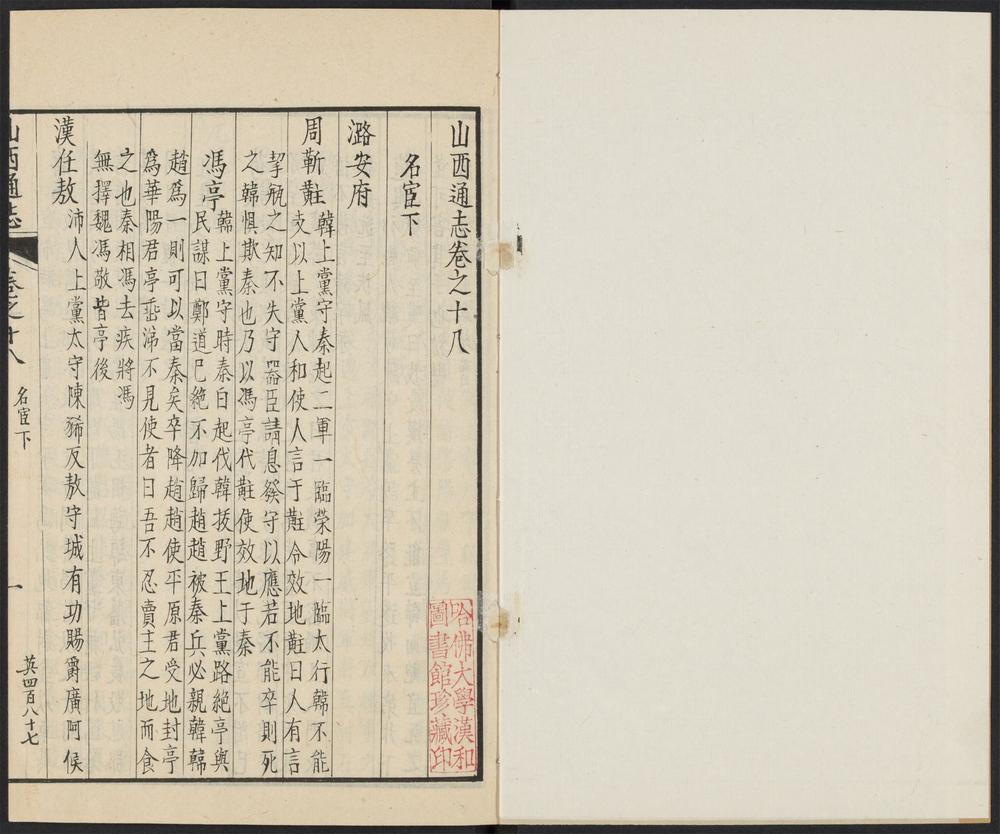 山西通志卷之十八
名宦下
潞安府
周靳黈
韓上黨守秦起二軍一臨榮陽一臨太行韓不能
支以上黨人和使人言于黈令效地黈曰人有言
挈瓶之知不失守器臣請息發守以應若不能卒則死
之韓惧欺秦也乃以馮亭代黈使效地于秦
馮亭
韓上黨守時秦白起伐韓拔野王上黨路絶亭與
民謀曰鄭道巳絶不加歸趙趙被秦兵必親韓韓
趙爲一則可以當秦矣卒降趙趙使平原君受地封亭
爲華陽君亭垂涕不見使者曰吾不忍賣主之地而食
之也秦相馮去疾將馮
無擇魏馮敬皆亭後
漢任敖
沛人上黨太守陳豨反敖守城有功賜爵廣阿侯
山西通志
卷之十八
名宦下
一
英四百八十七
哈佛大學漢和
圖書館珍藏印